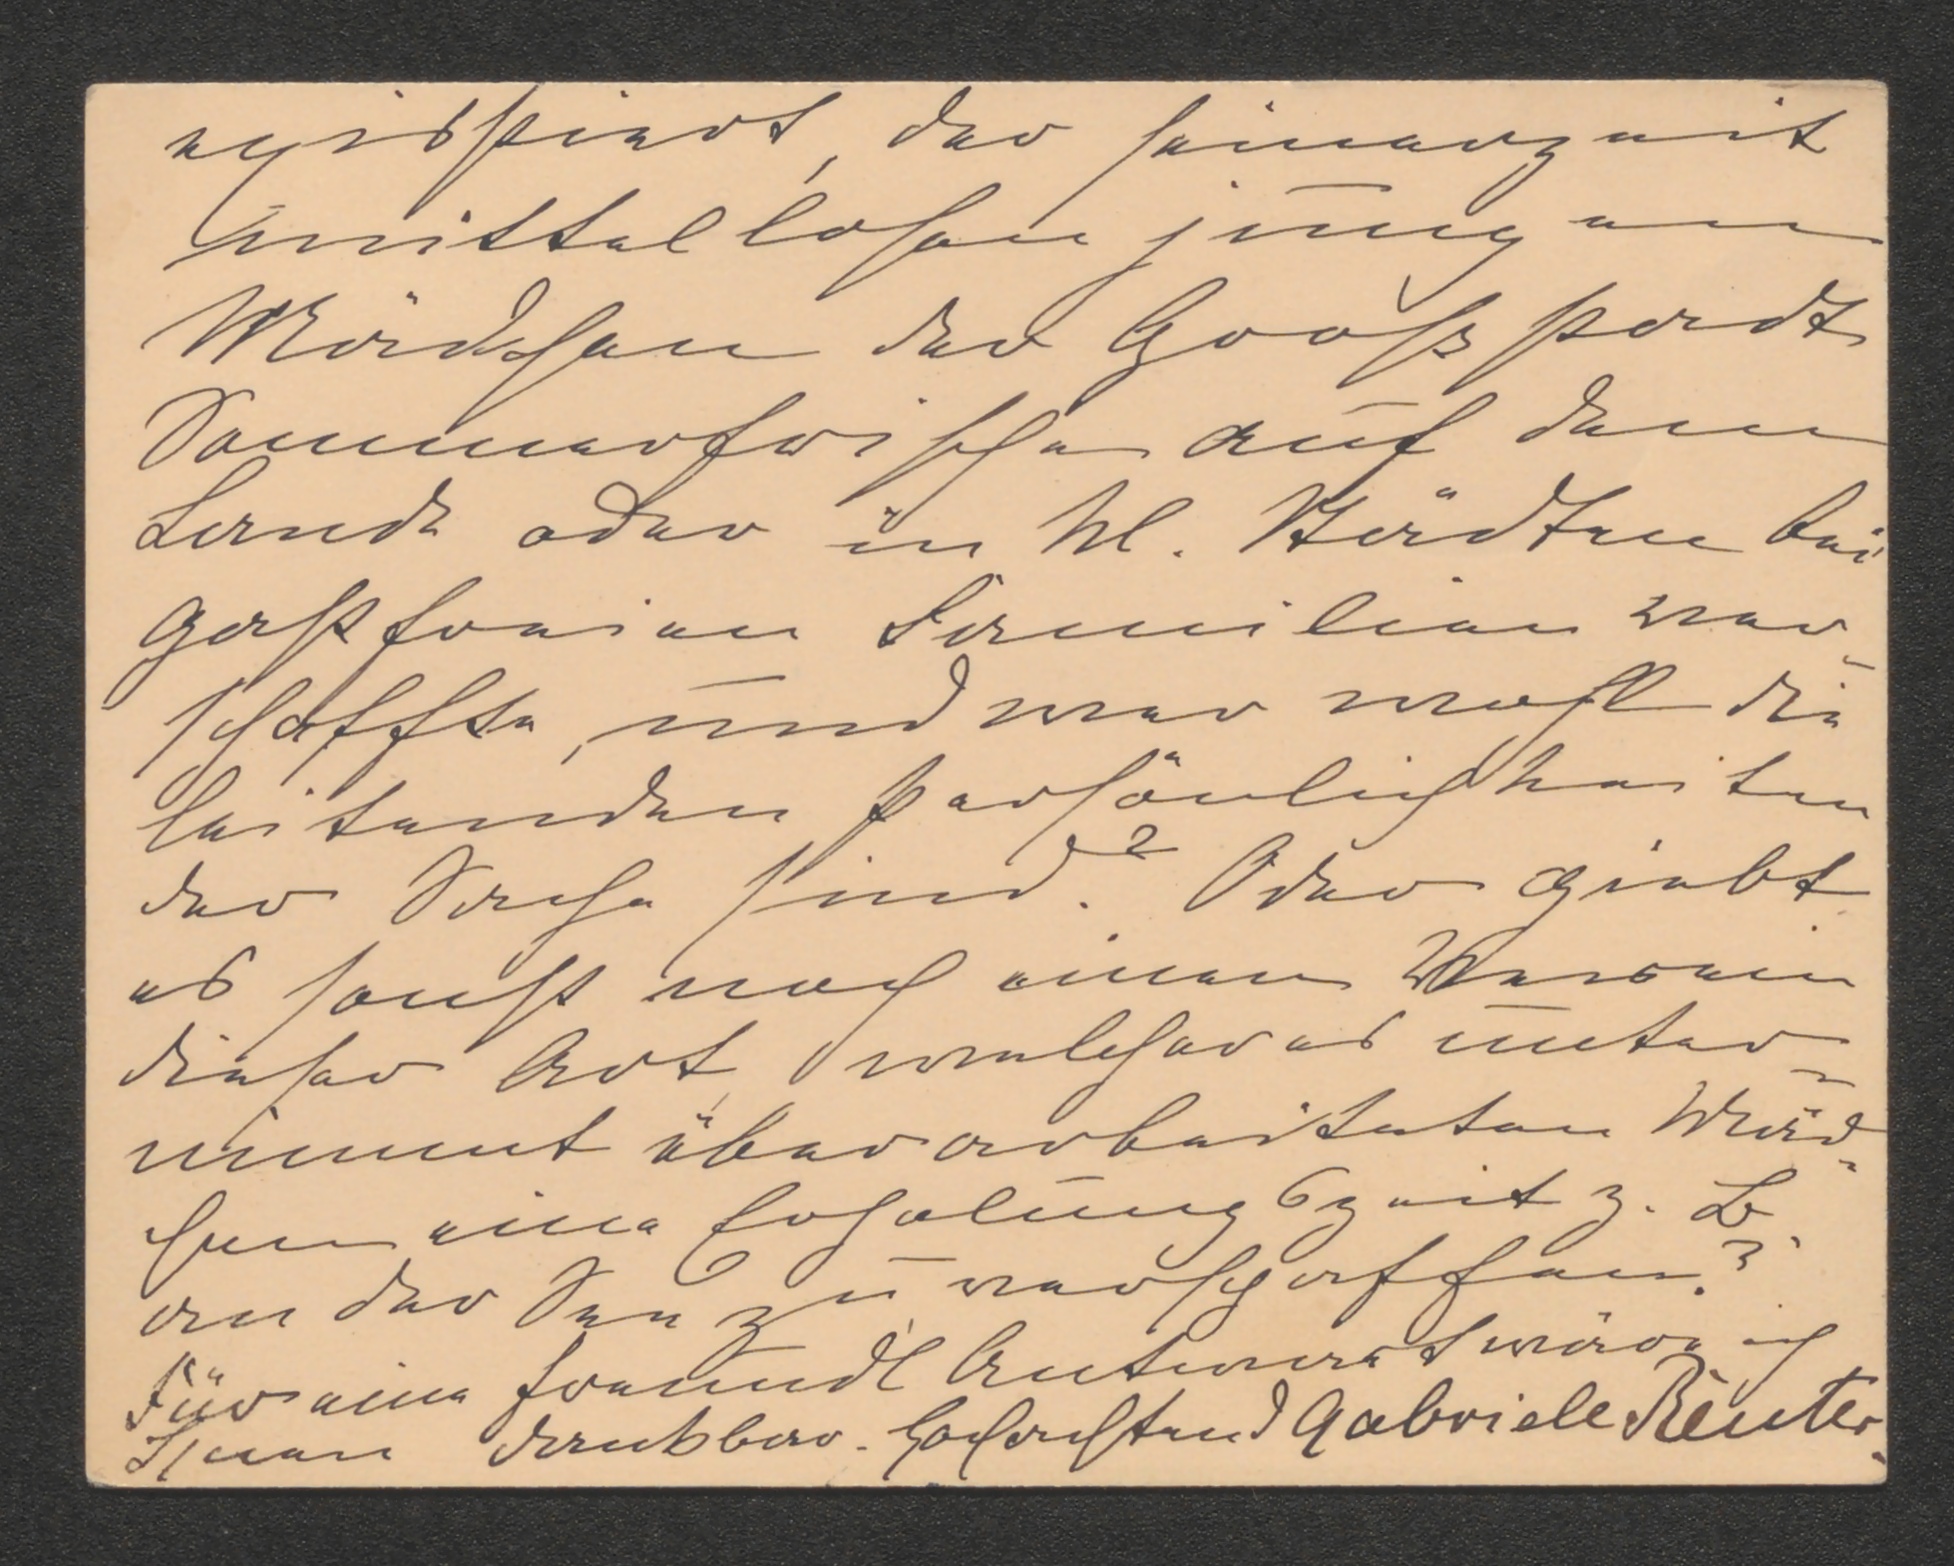 existiert, der seinerzeit
mittellosen jungen
Mädchen der Großstadt
Sommerfrische auf dem
Lande oder in kl. Städten bei
gastfreien Familien ver-
schaffte, und wer wohl die
leitenden Persönlichkeiten
der Sache sind? Oder giebt
es sonst noch einen Verein
dieser Art, welcher es unter-
nimmt überarbeiteten Mäd-
chen eine Erholungszeit z. B.
an der See zu verschaffen?
Für eine freundl Antwort wäre ich
Ihnen dankbar. Hochachtend Gabriele Reuter.